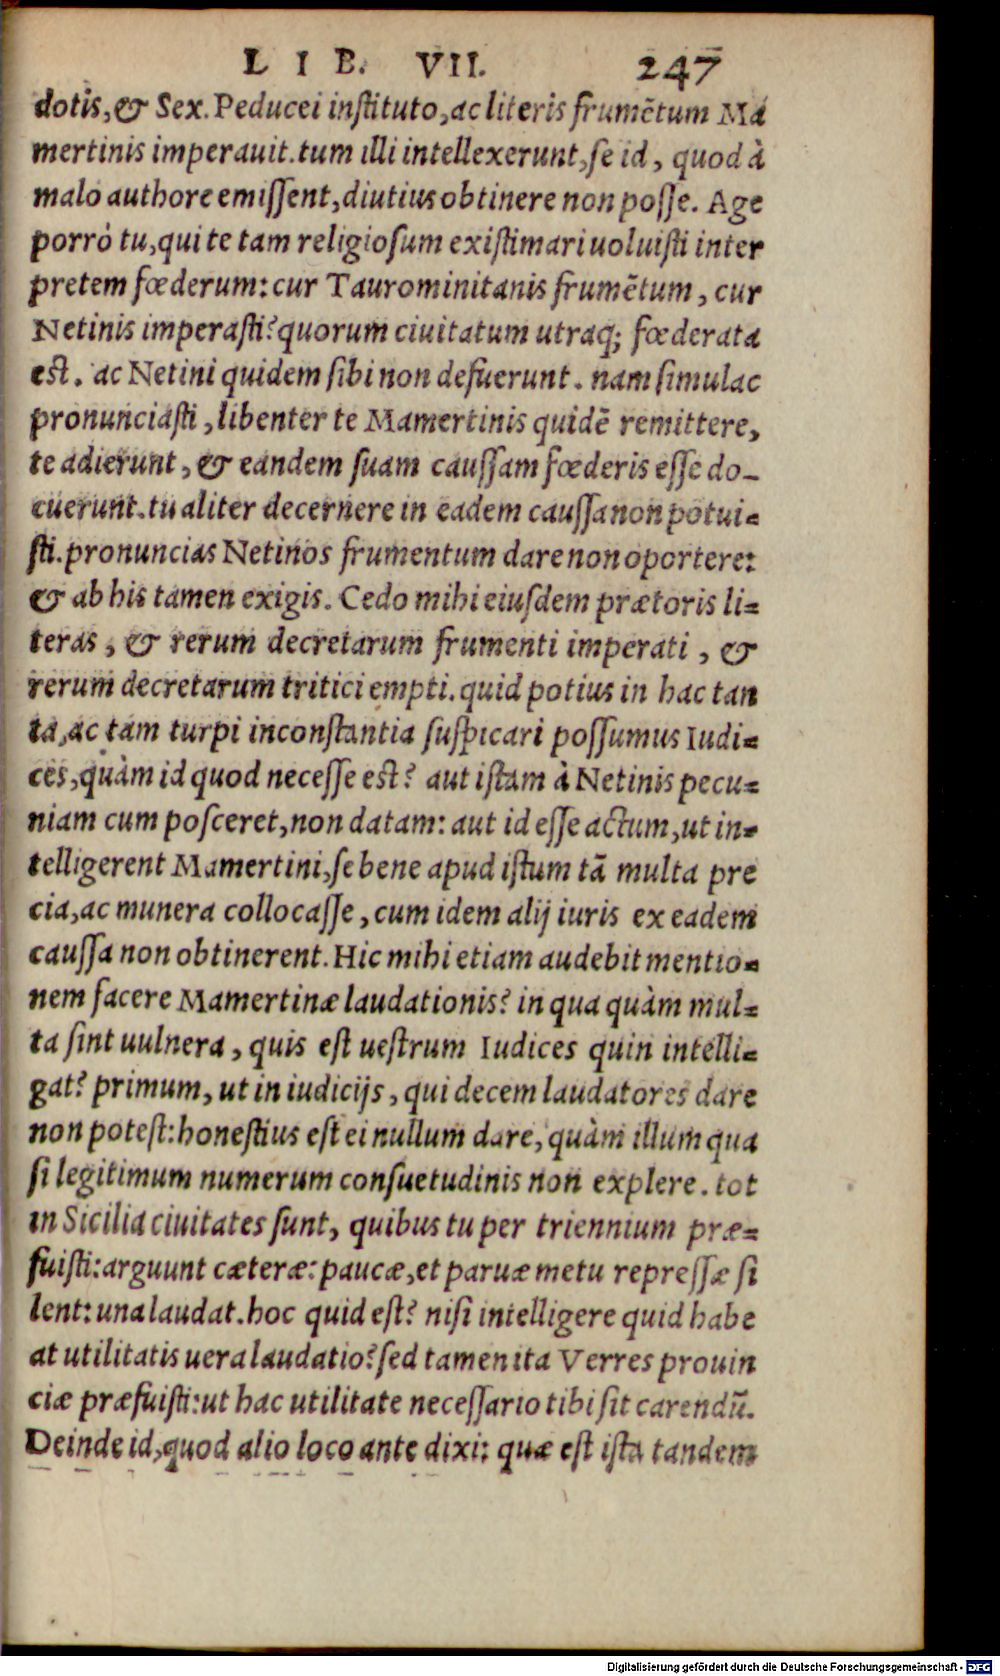 LIB. VII. 247
dotis, & Sex. Peducei instituto, ac literis frumẽtum Ma
mertinis imperauit. tum illi intellexerunt, se id, quod à
malo authore emissent, diutius obtinere non posse. Age
porrò tu, qui te tam religiosum existimari uoluisti inter
pretem fœderum: cur Taurominitanis frumẽtum, cur
Netinis imperasti? quorum ciuitatum utraq; fœderata
est. ac Netini quidem sibi non defuerunt. nam simulac
pronunciasti, libenter te Mamertinis quidẽ remittere,
te adierunt, & eandem suam caussam fœderis esse do-
cuerunt. tu aliter decernere in eadem caussa non potui-
sti. pronuncias Netinos frumentum dare non oportere:
& ab his tamen exigis. Cedo mihi eiusdem prætoris li-
teras, & rerum decretarum frumenti imperati, &
rerum decretarum tritici empti. quid potius in hac tan
ta, ac tam turpi inconstantia suspicari possumus Iudi-
ces, quàm id quod necesse est? aut istam à Netinis pecu-
niam cum posceret, non datam: aut id esse actum, ut in-
telligerent Mamertini, se bene apud istum tã multa pre
cia, ac munera collocasse, cum idem alij iuris ex eadem
caussa non obtinerent. Hic mihi etiam audebit mentio-
nem facere Mamertinæ laudationis? in qua quàm mul-
ta sint uulnera, quis est uestrum Iudices quin intelli-
gat? primum, ut in iudicijs, qui decem laudatores dare
non potest: honestius est ei nullum dare, quàm illum qua
si legitimum numerum consuetudinis non explere. tot
in Sicilia ciuitates sunt, quibus tu per triennium præ-
fuisti: arguunt cæteræ: paucæ, et paruæ metu repressæ si
lent: una laudat. hoc quid est? nisi intelligere quid habe
at utilitatis uera laudatio? sed tamen ita Verres prouin
ciæ præfuisti: ut hac utilitate necessario tibi sit carendũ.
Deinde id, quod alio loco ante dixi: quæ est ista tandem
Digitalisierung gefördert durch die Deutsche Forschungsgemeinschaft - DFG